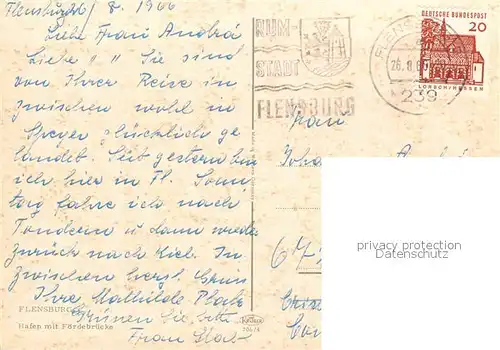 Flensburg / 8. 1966
Liebe Frau André
Liebe " " Sie sind
von Ihrer Reise in
zwischen wohl in
Speyer glücklich ge
landet. Seit gestern bin
ich hier in Fl. Sonn
tag fahre ich nach
Tondern u dann wieder
zurück nach Kiel. In
zwischen herzl. Grüße
Ihre Mathilde
Grüssen Sie bitte
Frau
FLENSBURG
Hafen mit Fördebrücke
RUM-
STADT
FLENSBURG
239
DEUTSCHE BUNDESPOST
20
LORSCH/HESSEN
Frau
André
67
privacy protection
Datenschutz